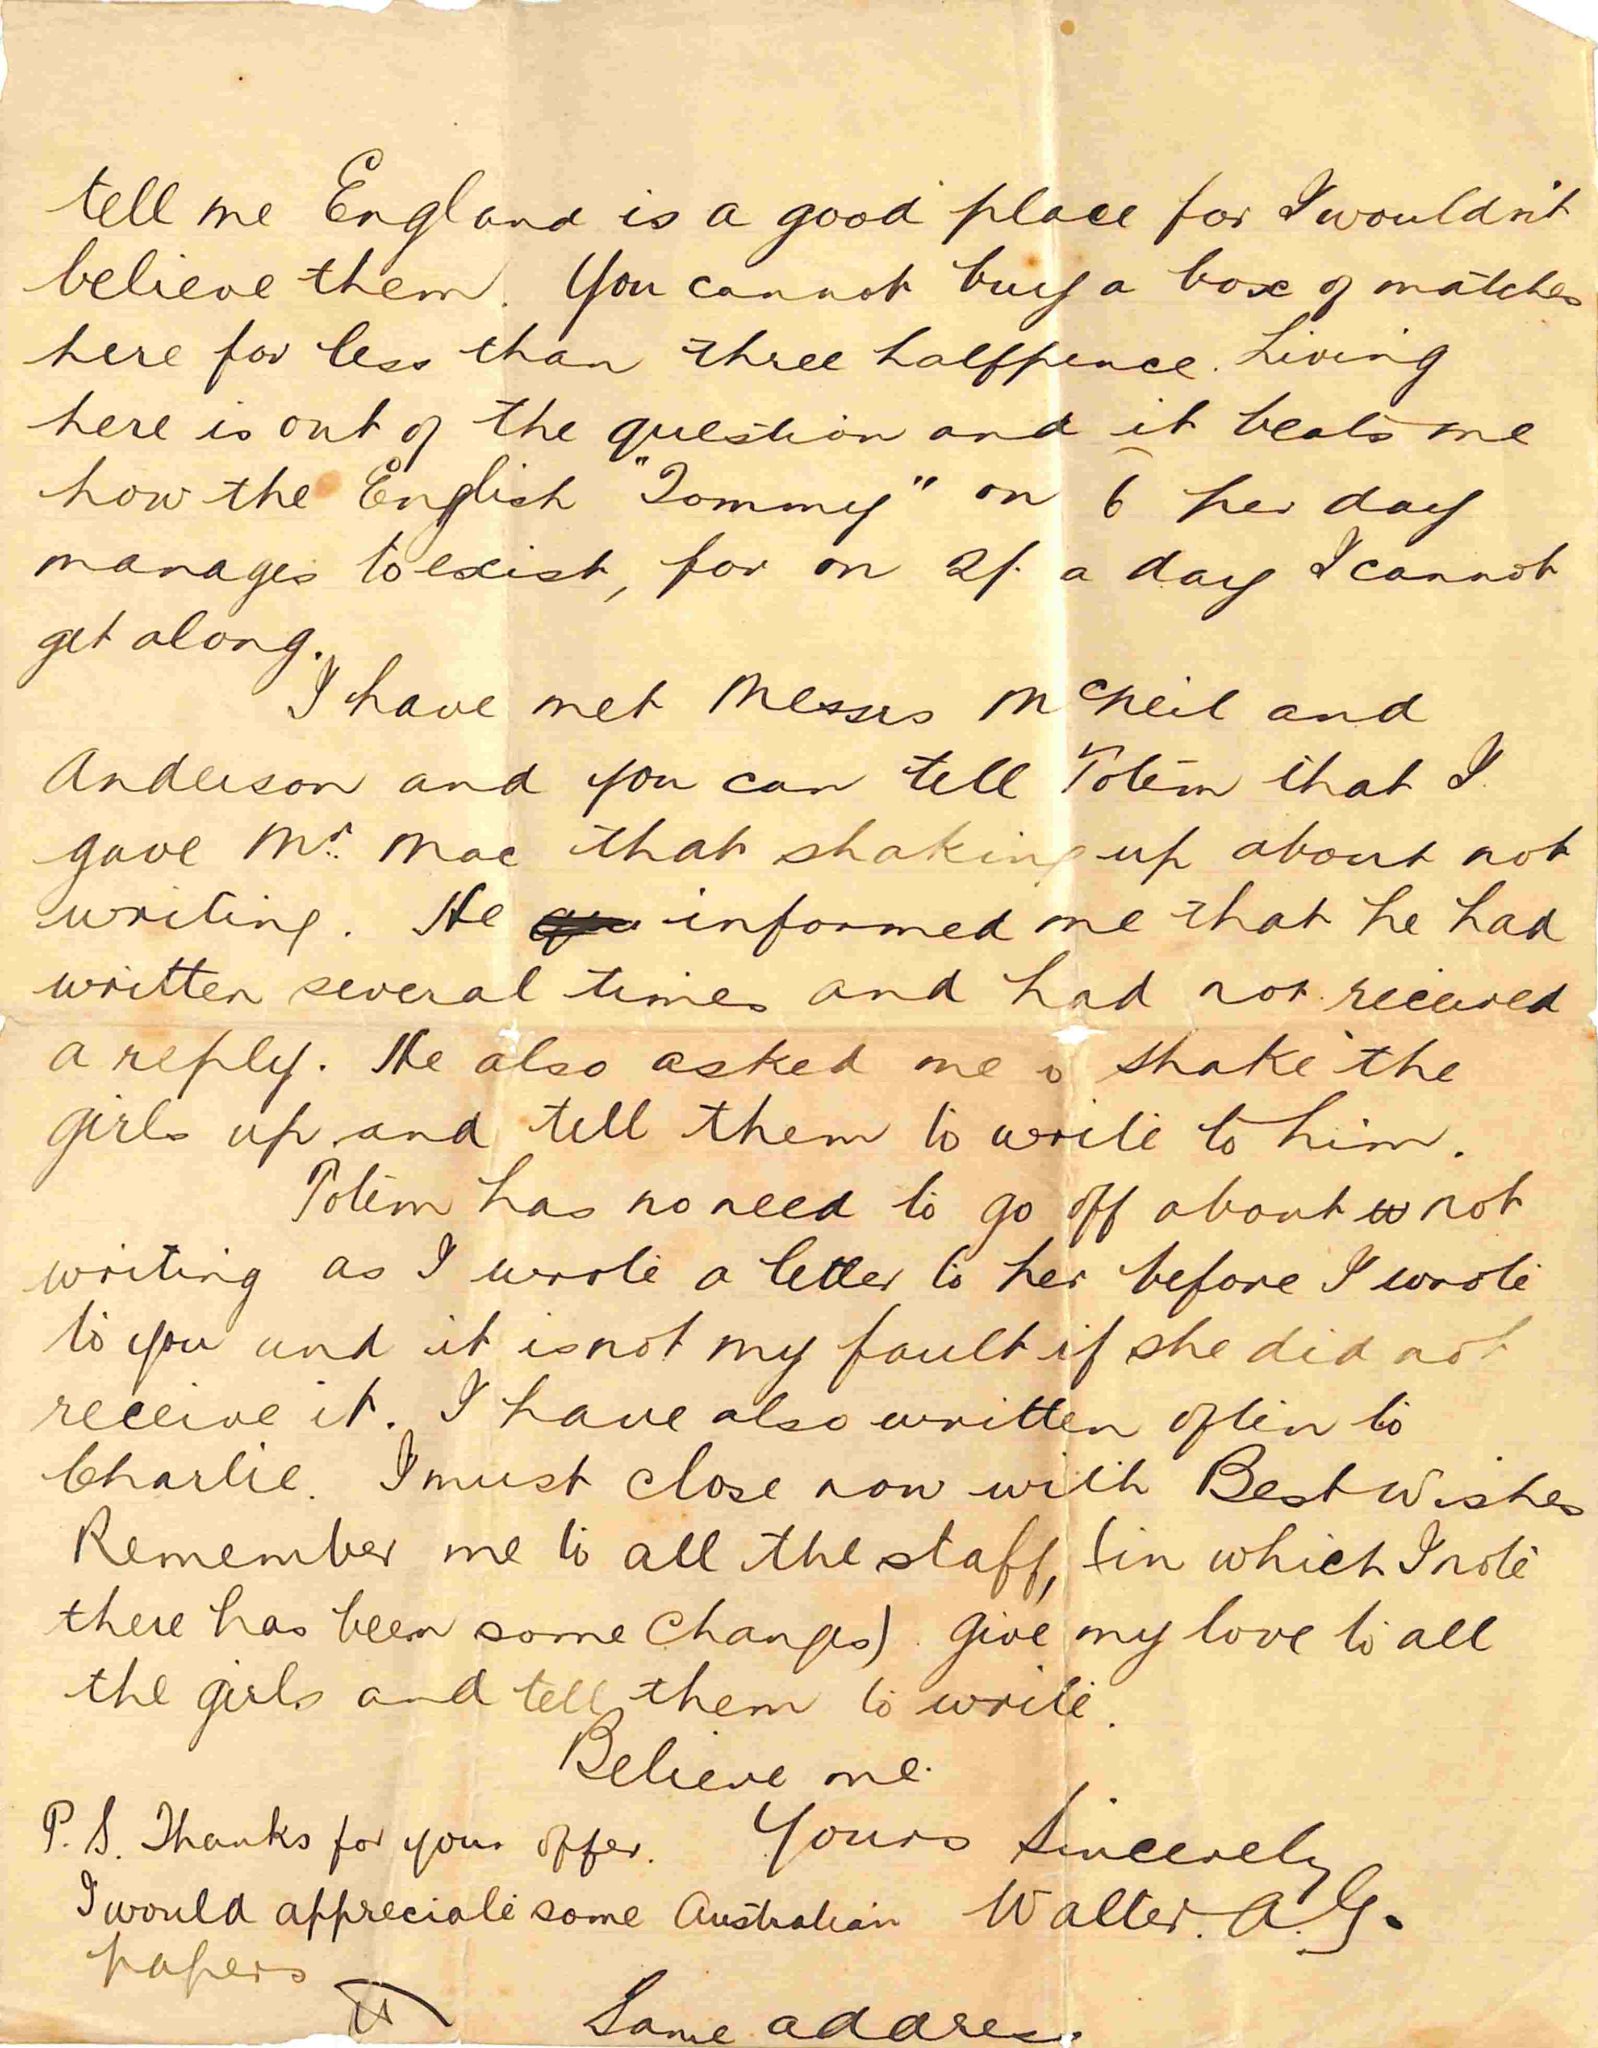 tell me England is a good place for I wouldn't
believe them. You cannot buy a box of matches
here for less than three halfpence. Living
here is out of the question and it beats me
how the English "Tommy" on 6 per day
manages to exist, for on 2/. a day I cannot
get along.
I have met Messrs McNeil and
Anderson and you can tell Totem that I
gave Mr. Mac that shaking up about not
writing. He informed me that he had
written several times and had not received
a reply. He also asked me o shake the
girls up and tell them to write to him.
Totem has no need to go off about not
writing as I wrote a letter to her before I wrote
to you and it is not my fault if she did not
receive it. I have also written often to
Charlie. I must close now with Best Wishes
Remember me to all the staff, (in which I note
there has been some changes). Give my love to all
the girls and tell them to write.
Believe me.
Yours Sincerely
Walter. A. G.
P.S. Thanks for your offer.
I would appreciate some Australian
papers
Same address.